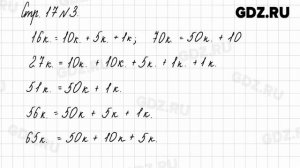 GDZ.RU
Стр. 17 №3.
16к. = 10к. + 5к. + 1к; 70к. = 50к. + 10
27к. = 10к. + 10к. + 5к. + 1к. + 1к.
51к. = 50к. + 1к.
56к = 50к + 5к. + 1к.
65к. = 50к + 10к + 5к.